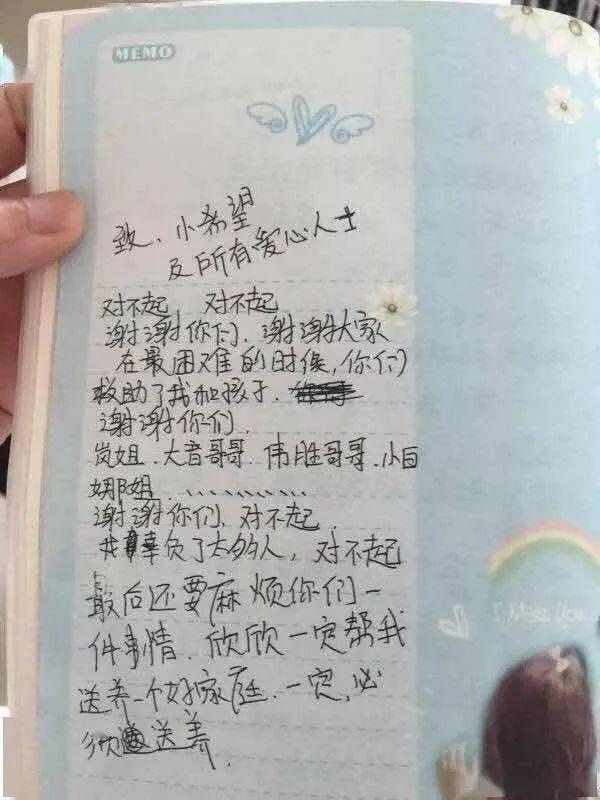 MEMO
致、小希望
及所有爱心人士
对不起 对不起
谢谢你们、谢谢大家
在最困难的时候,你们
救助了我和孩子.
谢谢你们.
岚姐、大音哥哥、伟胜哥哥、小白
娜姐、、、、、、、、、、
谢谢你们、对不起.
我辜负了太多人,对不起
最后还要麻烦你们一
件事情、欣欣一定帮我
送养一个好家庭、一定、必
须送养.
I Miss You